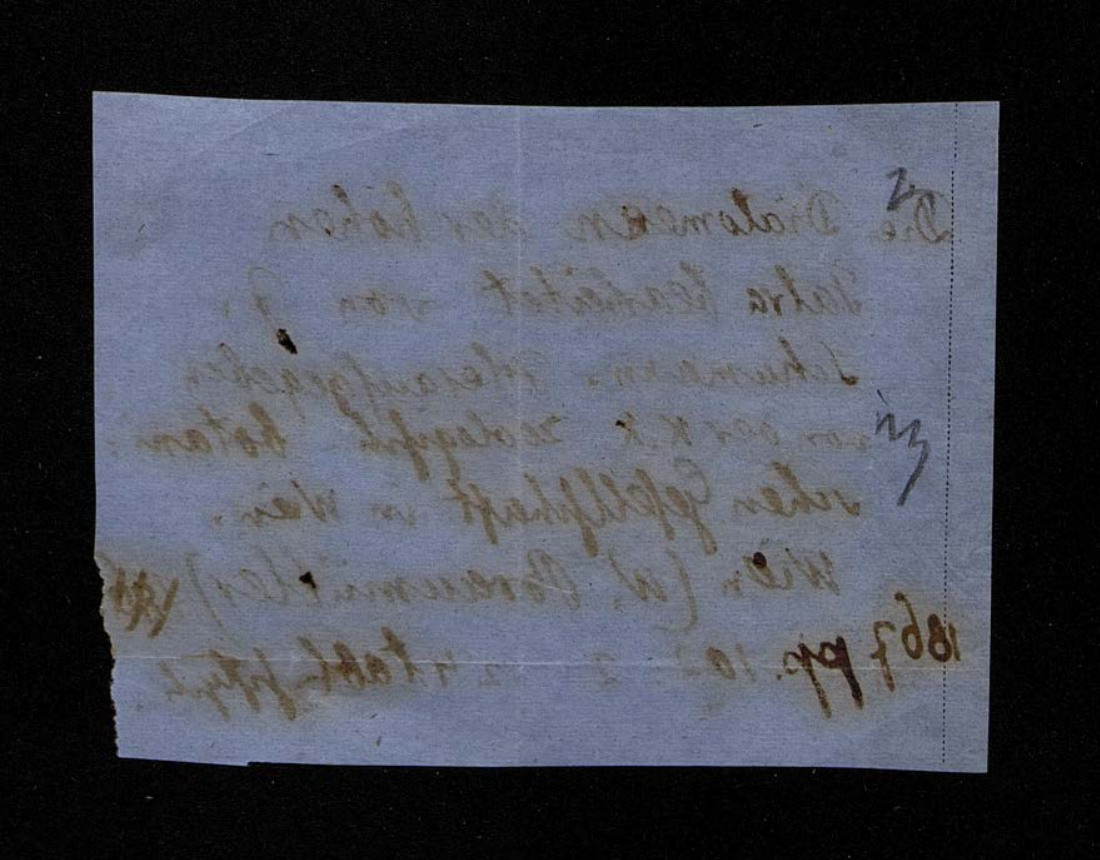 Die Diatomeen der hohen
Tatra bearbeitet von J.
Schumann. Herausgegeben
von der K. K. zoologisch botani-
schen Gesellschaft in Wien.
Wien (W. Braumüller)
1867 pp. 102 4 tabb.